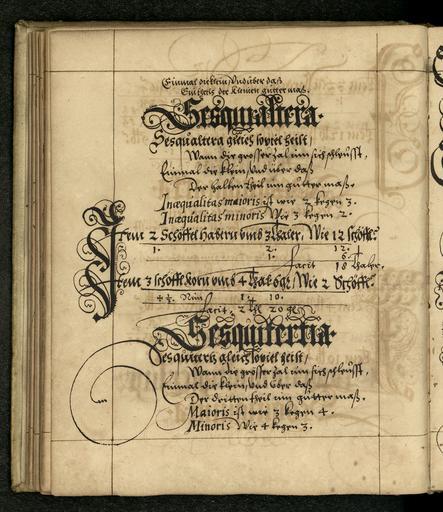 Einmal die klein, Und uber daß
Ein theils der kleinen gutter maß.
Sesquialtera.
Sesqualtera gleich soviel heist,
Wann die grosser zal inn sich schleusst,
Einmal die klein, Und uber daß
Der halten theil inn gutter maß.
Inæqualitas maioris ist wie 2 kegen 3.
Inæqualitas minoris Wie 3 kegen 2.
Item 2 Schöffel Habern umb 3 thaler, Wie 12 schöffl:
1. 2. 12.
1. 6.
facit 18 thaler.
Item 3 schöffl korn umb 4 thal 6 gl, Wie 2 Schöffl:
Nim 1 10.
facit 2 20
Sesquitertia.
Sesquitertz gleich soviel heist,
Wann die grosser zal inn sich schleusst,
Einmal die klein, Und über daß
Der dritten theil inn gutter maß.
Maioris ist wie 3 kegen 4.
Minoris Wie 4 kegen 3.